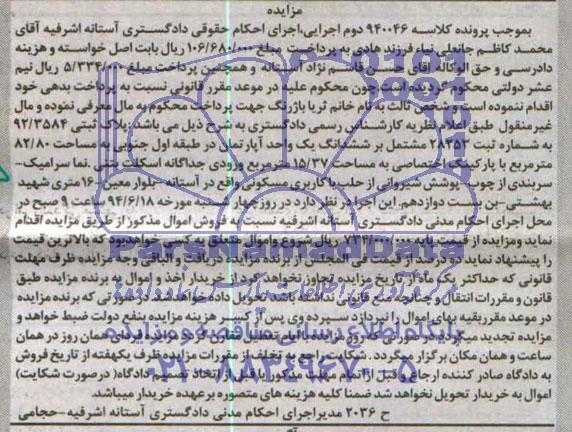 مزایده
بموجب پرونده کلاسه ۹۴۰۰۴۶ دوم اجرایی،اجرای احکام حقوقی دادگستری آستانه اشرفیه آقای
محمد کاظم جانعلی نیاء فرزند هادی به پرداخت مبلغ ۱۰۶/۶۸۰/۰۰۰ ریال بابت اصل خواسته و هزینه
دادرسی و حق الوکاله آقای حسن قاسم نژاد آستانه و همچنین پرداخت مبلغ ۵/۳۳۴/۰۰۰ ریال نیم
عشر دولتی محکوم گردیده است چون محکوم علیه در موعد مقرر قانونی نسبت به پرداخت بدهی خود
اقدام ننموده است و شخص ثالث به نام خانم ثریا باژرنگ جهت پرداخت محکوم به مال معرفی نموده و مال
غیرمنقول طبق اعلام نظریه کارشناس رسمی دادگستری به شرح ذیل می باشد: پلاک ثبتی ۹۲/۳۵۸۴
به شماره ثبت ۲۸۳۵۳ مشتمل بر ششدانگ یک واحد آپارتمان در طبقه اول جنوبی به مساحت ۸۲/۸۰
مترمربع با پارکینگ اختصاصی به مساحت ۱۵/۳۷ مترمربع ورودی جداگانه اسکلت بتنی نما سرامیک-
سربندی از چوب-پوشش شیروانی از حلب با کاربری مسکونی واقع در آستانه-بلوار معین-۱۶متری شهید
بهشتی-بن بست دوازدهم. این اجرا در نظر دارد در روز چهار شنبه مورخه ۹۴/۶/۱۸ ساعت ۹ صبح در
محل اجرای احکام مدنی دادگستری آستانه اشرفیه نسبت به فروش اموال مذکور از طریق مزایده اقدام
نماید ومزایده از قیمت پایه ۷۳۴/۰۰۰/۰۰۰ ریال شروع واموال متعلق به کسی خواهدبود که بالاترین قیمت
را پیشنهاد نماید ده درصد از قیمت فی المجلس از برنده مزایده دریافت و الباقی وجه مزایده ظرف مهلت
قانونی که حداکثر یک ماه از تاریخ مزایده تجاوز نخواهد کرد از خریدار اخذ و اموال به برنده مزایده طبق
قانون و مقررات انتقال و چنانچه منع قانونی نداشته باشد تحویل داده خواهدشد. در صورتی که برنده مزایده
در موعد مقرربقیه بهای اموال را نپردازد سپرده وی پس از کسر هزینه مزایده بنفع دولت ضبط خواهد و
مزایده تجدید میگردد در صورتی که روز مزایده با ایام تعطیل تقارن گردد مزایده فردای همان روز در همان
ساعت و همان مکان برگزار میگردد. شکایت راجع به تخلف از مقررات مزایده ظرف یکهفته از تاریخ فروش
به دادگاه صادر کننده ارجاع و قبل از اتمام مهلت مذکور یا قبل از اتخاذ تصمیم دادگاه( درصورت شکایت)
اموال به خریدار تحویل نخواهد شد ضمنا کلیه هزینه های متصوره برعهده خریدار میباشد.
ح ۲۰۳۶ مدیراجرای احکام مدنی دادگستری آستانه اشرفیه-حجامی
ParsNamadData
پایگاه اطلاع رسانی مناقصه و مزایده
۰۲۱-۸۸۳۴۹۶۷۰-۵